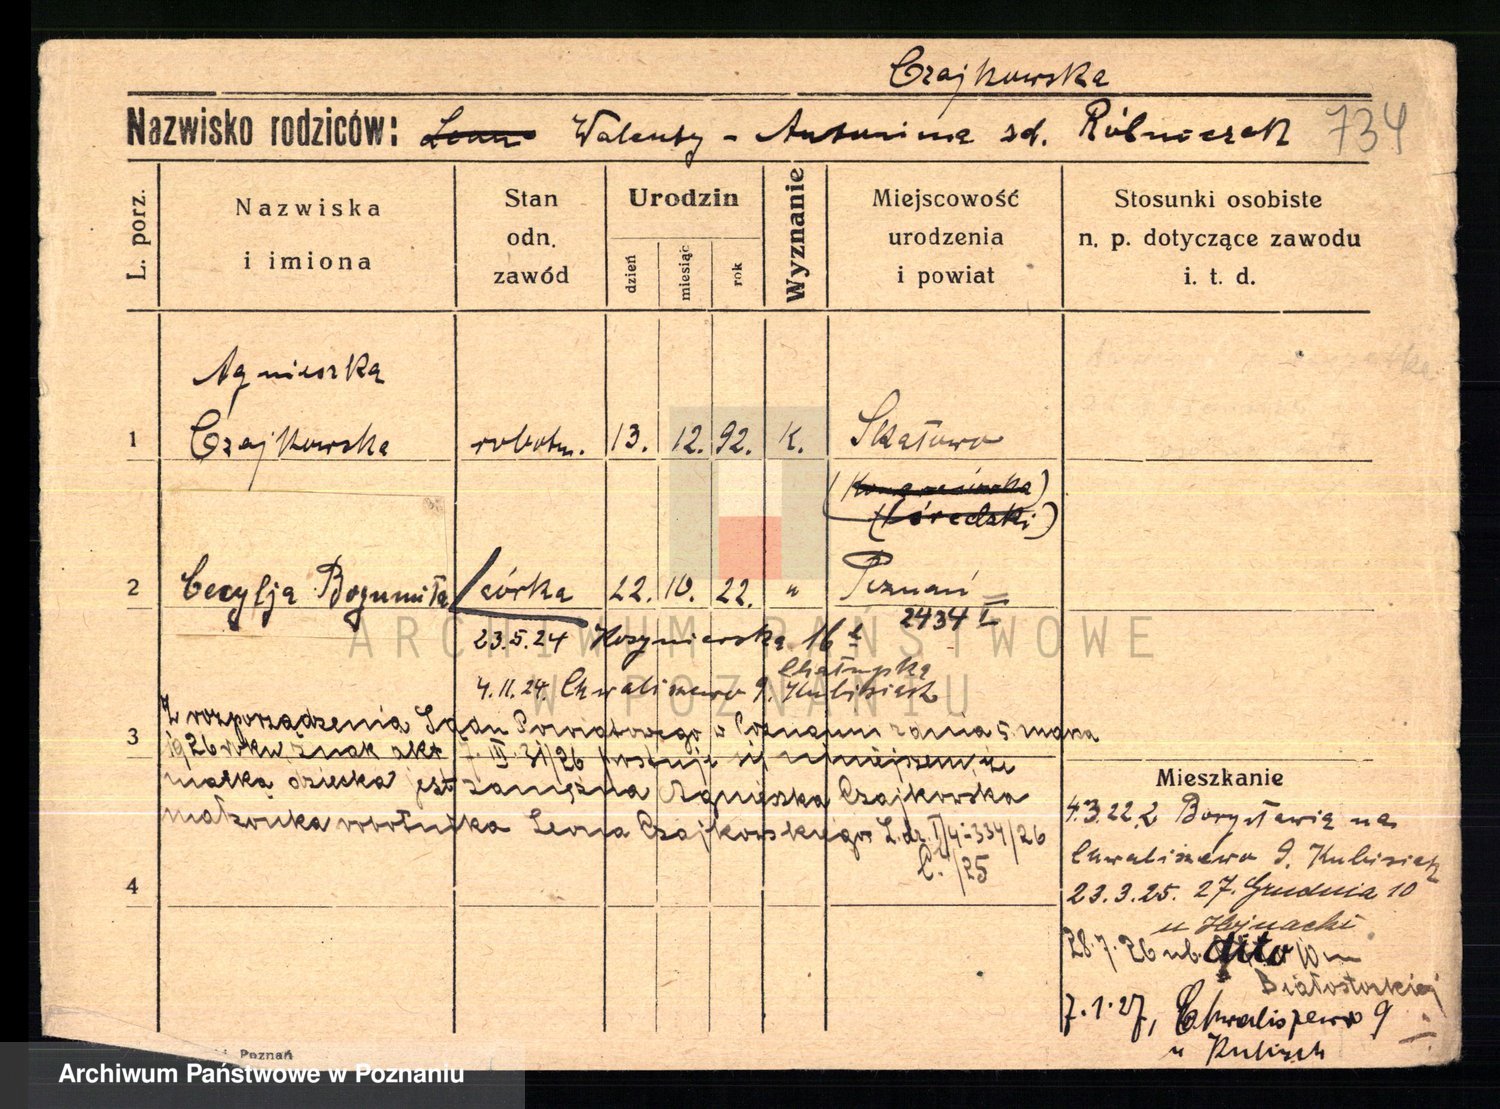 Czajkowska
Nazwisko rodziców: Leon Walenty – Antonina zd. Róbniczak 734
L. porz.
Nazwiska
i imiona
Stan
odn.
zawód
Urodzin
dzień
miesiąc
rok
Wyznanie
Miejscowość
urodzenia
i powiat
Stosunki osobiste
n. p. dotyczące zawodu
i. t. d.
Agnieszka
1 Czajkowska robotn. 13. 12. 92. K. Skałowo
(Kongresówka)
(Śóredzki)
2 Cecylja Bogumiła córka 22. 10. 22. " Poznań
2434 II
23.5.24 16
Chałupka
4.11.24. Chwaliszewo 9. Kubisiak
Z rozporządzenia Sądu Powiatowego w Poznaniu z dnia 5 marca
3
1926 roku znak akt 7. III. 31/26 prostuje się niniejszem, że
matką dziecka jest zamężna Agnieszka Czajkowska
małżonka robotnika Leona Czajkowskiego L.dz. I/4-334/26
C. /25
4
Mieszkanie
4.3.22. z Borysławia na
Chwaliszewo 9. Kubisiak
23.3.25. 27. Grudnia 10
u Hojnacki
28.7.26 ub. dito 10 m
Białostockiej
7.1.27, Chwaliszewo 9
u Kubisch
Poznań
ARCHIWUM PAŃSTWOWE
W POZNANIU
Archiwum Państwowe w Poznaniu